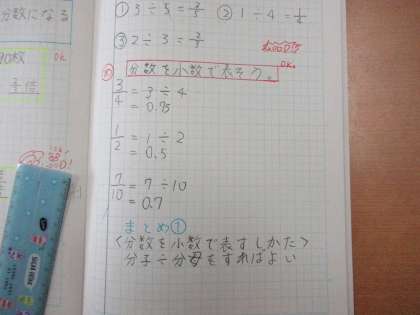 分数になる
① 3÷5=3/5 ② 1÷4=1/4
③ 2÷3=2/3
OK
OK。
分数を小数で表そう。
3/4 = 3÷4
= 0.75
1/2 = 1÷2
= 0.5
7/10 = 7÷10
= 0.7
まとめ①
〈分数を小数で表すしかた〉
分子÷分母をすればよい